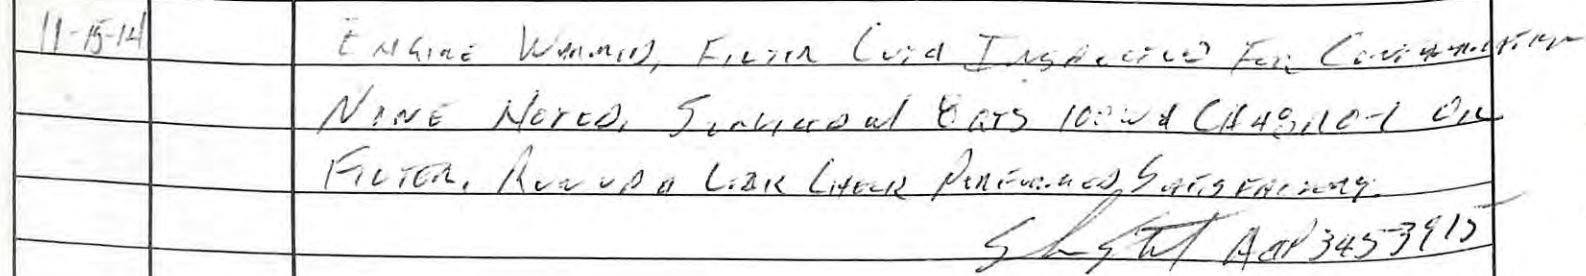 11-15-14 ENGINE WARMED, FILTER CUT & INSPECTED FOR CONTAMINATION
NONE NOTED, SERVICED W/ 8 QTS 100W & CH48110-1 OIL
FILTER. RUN UP & LEAK CHECK PERFORMED SATISFACTORY.
A&P 3453915